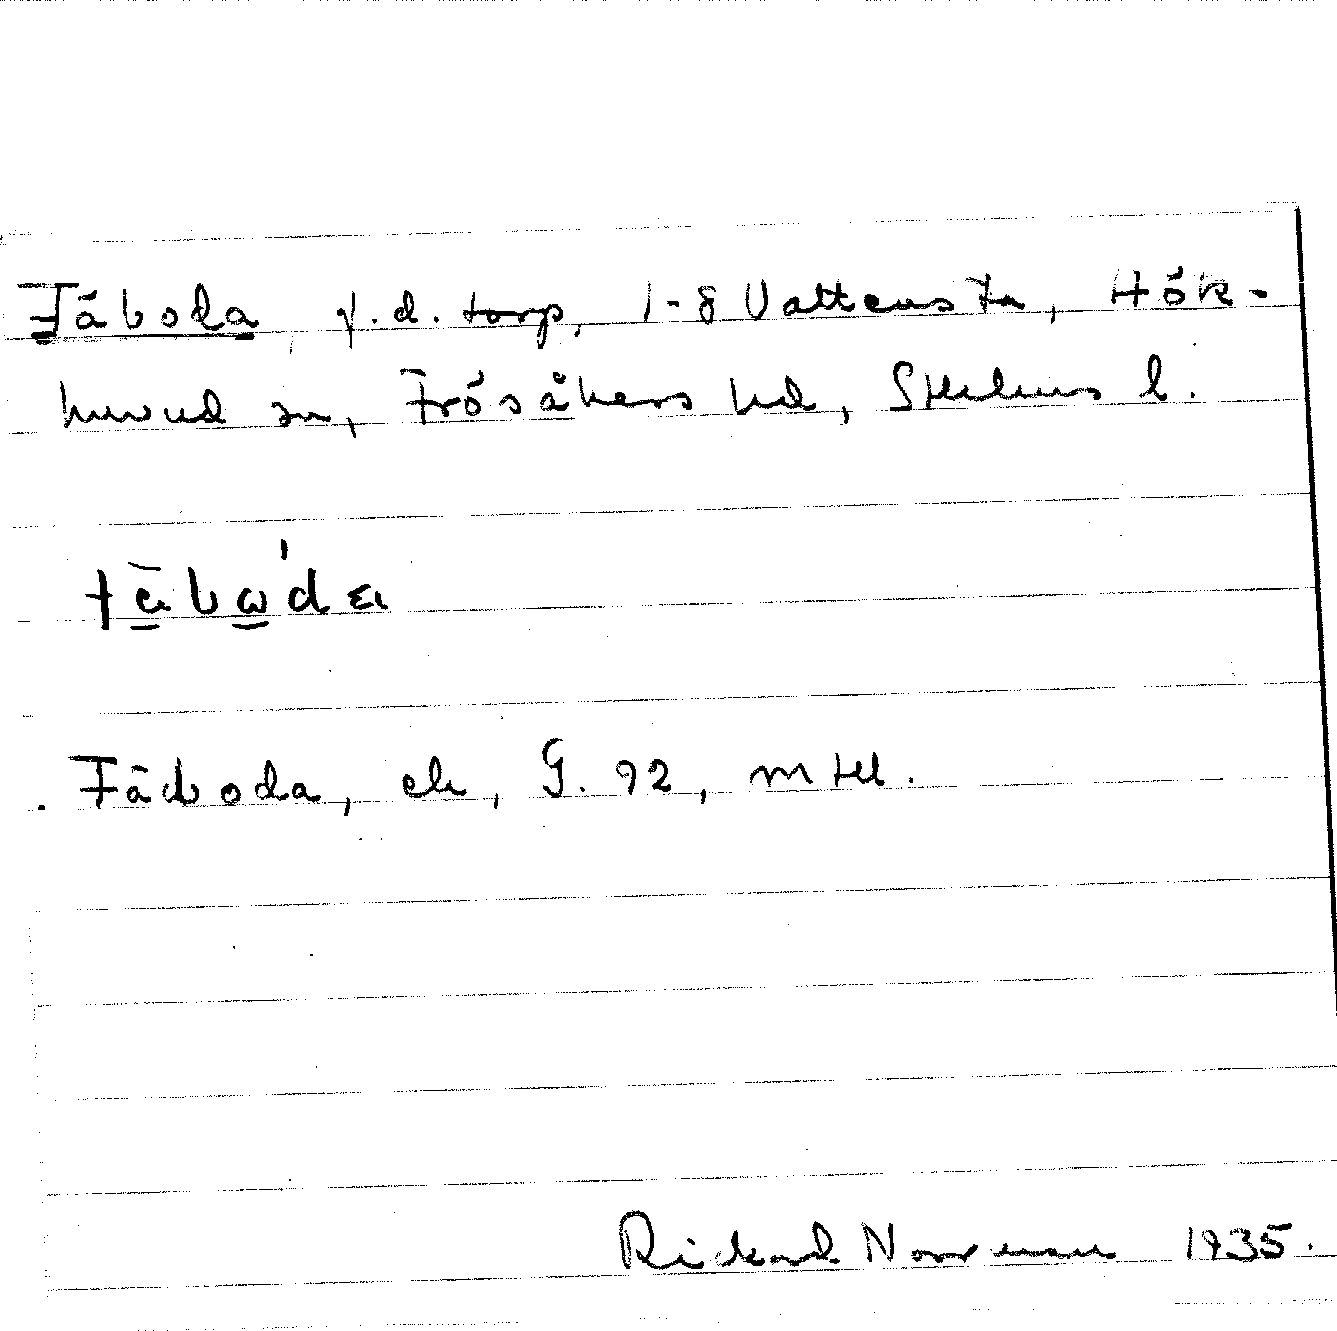 Fäboda f.d. torp, 1-8 Vattensta, Hök-
huvud sn, Frösåkers hd, Sthlms l.
Fäboda, ek, G. 92, mtll.
Rickard Norrman 1935.